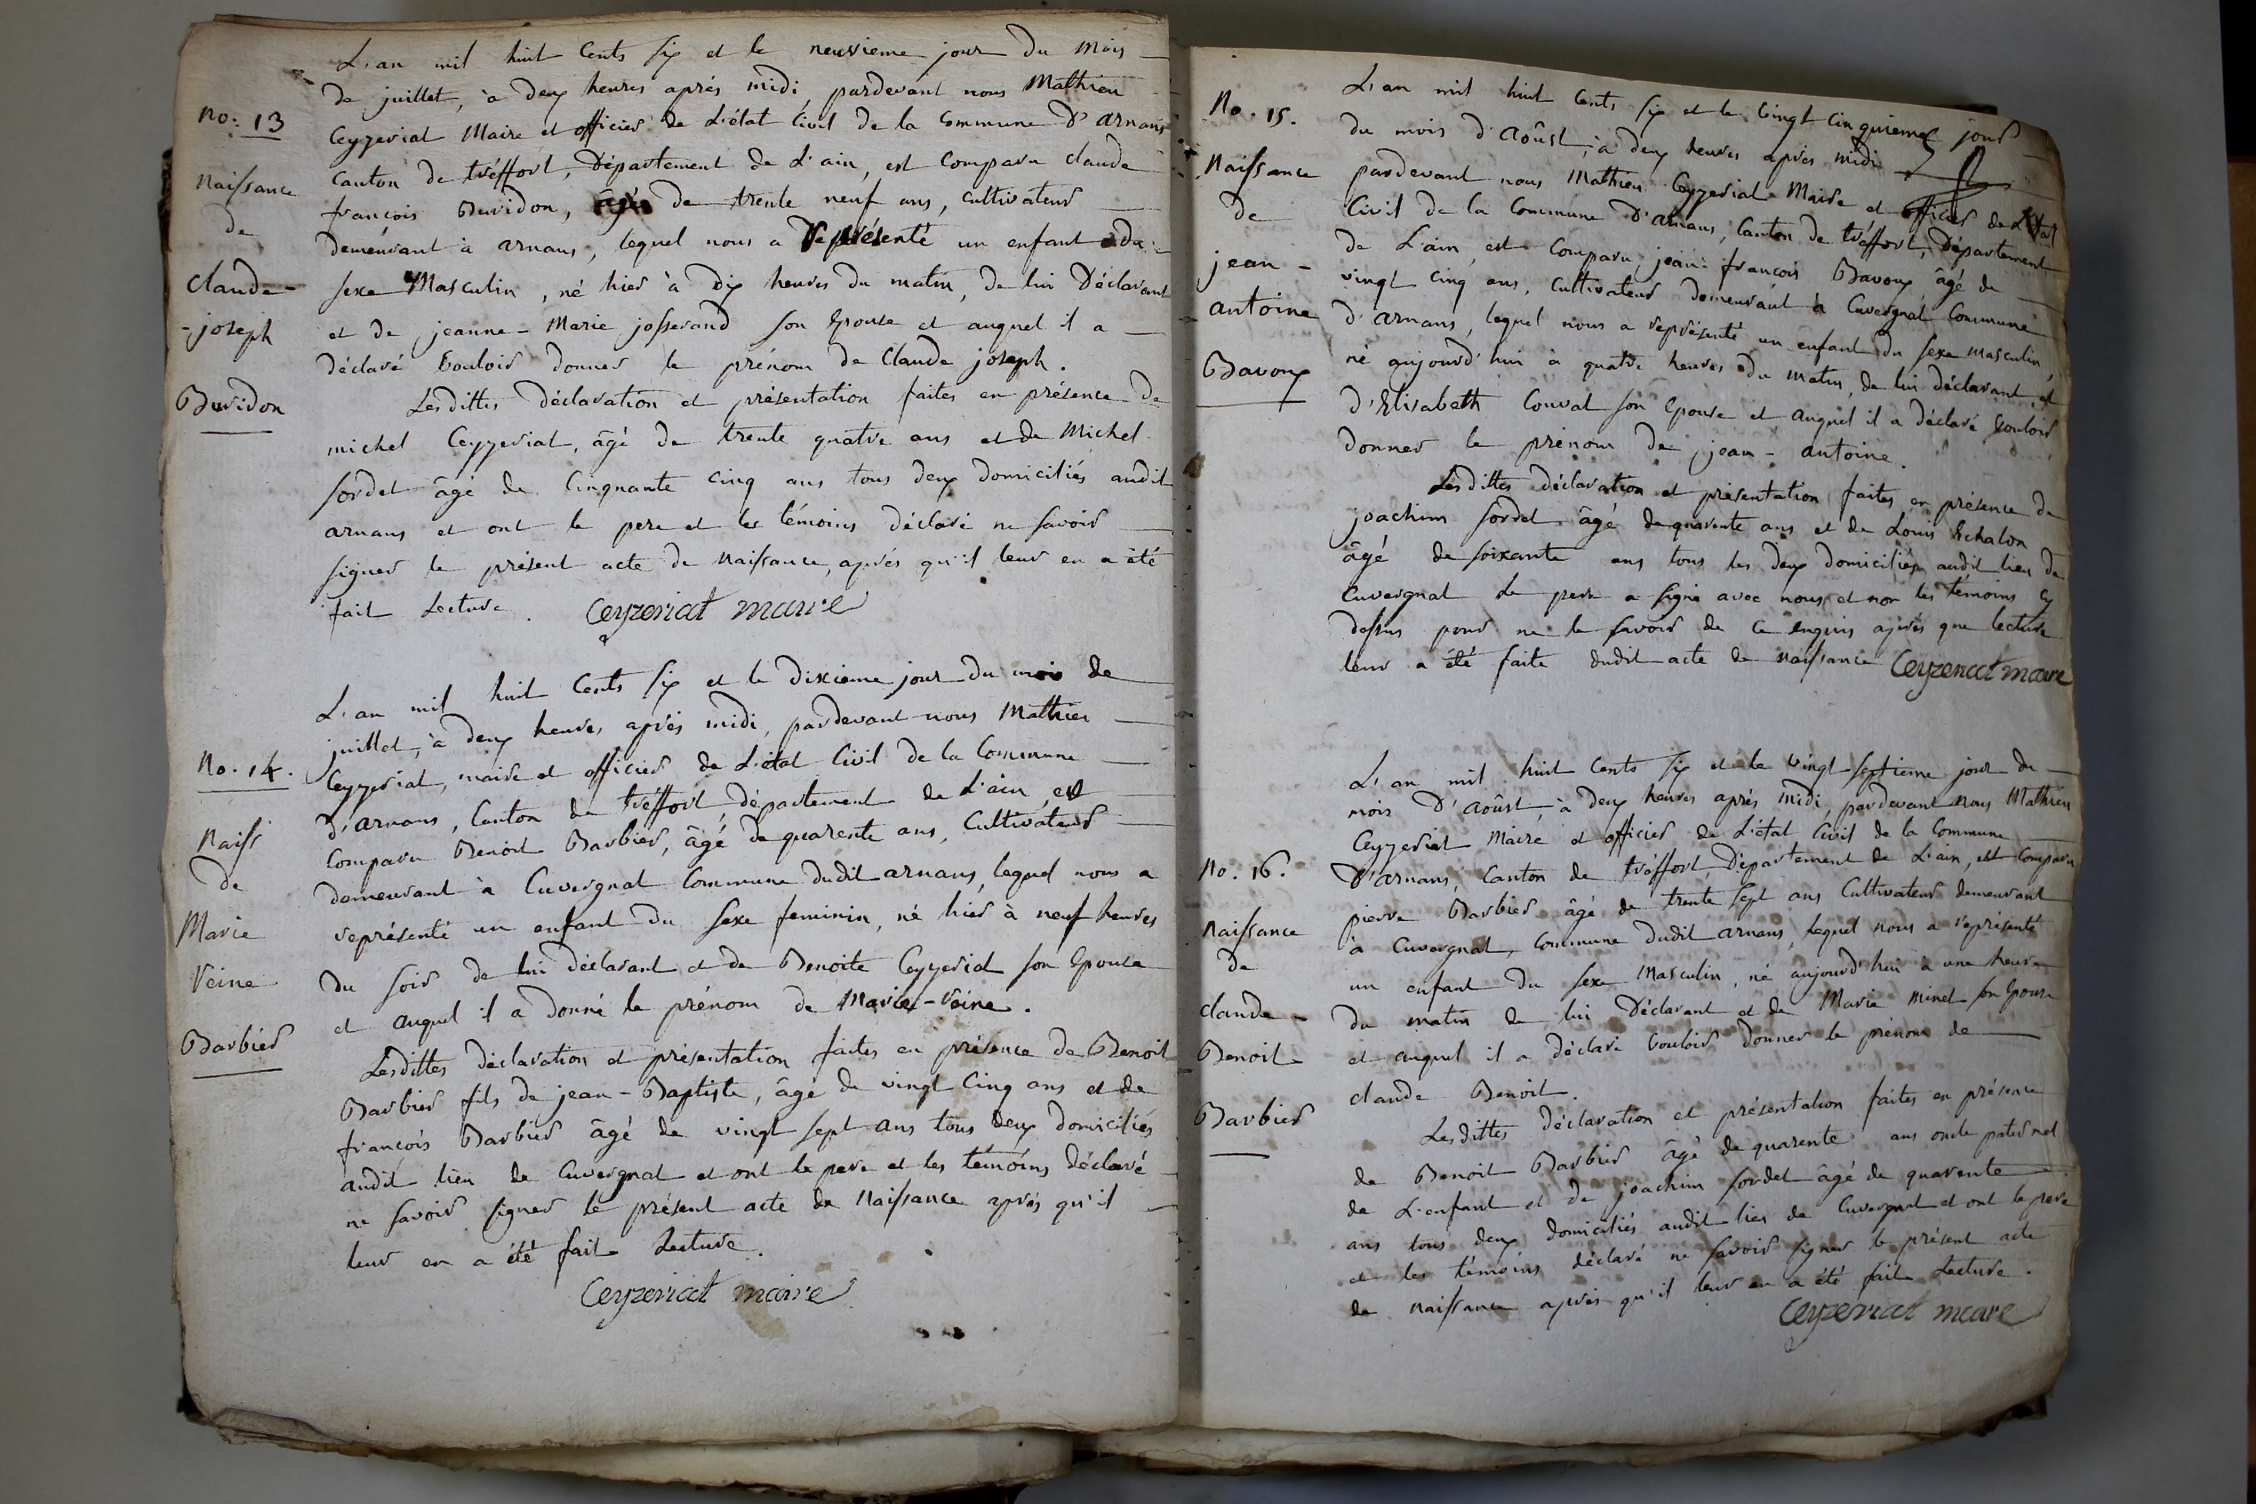 L'an mil huit Cents six et le neuvieme jour du mois
de juillet, à deux heures après midi, pardevant nous Mathieu
Ceyzeriat Maire et officier de L'état Civil de la Commune D'arnans
Canton de tréffort, Département de L'ain, est Comparu claude
françois Buvidon, âgé de trente neuf ans, Cultivateur
demeurant à arnans, lequel nous a Représenté un enfant du
sexe Masculin, né hier à dix heures du matin, de lui Déclarant
et de jeanne-Marie josserand son Epouse et auquel il a
déclaré vouloir donner le prénom de Claude joseph.
Lesdittes déclaration et présentation faites en présence de
michel Ceyzeriat, âgé de trente quatre ans et de Michel
sordet âgé de Cinquante cinq ans tous deux domiciliés audit
arnans et ont le pere et les témoins déclaré ne savoir
signer le présent acte de Naissance, après qu'il leur en a été
fait Lecture. Ceyzeriat maire
No. 13
Naissance
de
claude-
-joseph
Buvidon
L'an mil huit Cents six et le dixieme jour du mois de
juillet, à deux heures après midi, pardevant nous Mathieu
Ceyzeriat, maire et officier de L'état Civil de la Commune
d'arnans, Canton de tréffort, département de L'ain, est
Comparu Benoit Barbier, âgé de quarente ans, Cultivateur
demeurant à Cuvergnat Commune dudit arnans, lequel nous a
représenté un enfant du sexe feminin, né hier à neuf heures
du soir de lui déclarant et de Benoite Ceyzeriat son Epouse
et auquel il a donné le prénom de Marie-Reine.
Lesdittes déclaration et présentation faites en présence de Benoit
Barbier fils de jean-Baptiste, âgé de vingt Cinq ans et de
françois Barbier âgé de vingt sept ans tous deux domiciliés
audit lieu de Cuvergnat et ont le pere et les témoins déclaré
ne savoir signer le présent acte de Naissance après qu'il
leur en a été fait Lecture.
Ceyzeriat maire
No. 14.
Naiss
de
Marie
Reine
Barbier
L'an mil huit Cents six et le vingt Cinquieme jour
du mois d'Aoûst, à deux heures après midi
pardevant nous Mathieu Ceyzeriat Maire et officier de L'état
Civil de la Commune D'arnans, Canton de tréffort, Département
de L'ain, est Comparu jean-françois Bavoux âgé de
vingt cinq ans, Cultivateur demeurant à Cuvergnat Commune
d'arnans, lequel nous a représenté un enfant du sexe masculin,
né aujourd'hui à quatre heures du matin, de lui déclarant, et
d'Elisabeth Convat son Epouse et auquel il a déclaré vouloir
donner le prénom de jean-antoine.
Lesdittes déclaration et présentation faites en présence de
joachim sordet âgé de quarente ans et de Louis Echalon
âgé de soixante ans tous les deux domiciliés audit lieu de
Cuvergnat le pere a signé avec nous et non les témoins Cy
dessus pour ne le savoir de ce enquis après que lecture
leur a été faite dudit acte de naissance Ceyzeriat maire
No. 15.
Naissance
de
jean-
antoine
Bavoux
L'an mil huit Cents six et le vingt-septieme jour du
mois D'aoûst, à deux heures après midi, pardevant nous Mathieu
Ceyzeriat Maire et officier de L'état Civil de la Commune
D'arnans, Canton de tréffort, Département de L'ain, est Comparu
pierre Barbier âgé de trente sept ans Cultivateur demeurant
à Cuvergnat, Commune dudit arnans, lequel nous a représenté
un enfant du sexe Masculin, né aujourd'hui à une heure
du matin de lui Déclarant et de Marie Minet son Epouse
et auquel il a déclaré vouloir donner le prénom de
claude Benoit.
Lesdittes déclaration et présentation faites en présence
de Benoit Barbier âgé de quarente ans oncle paternel
de L'enfant et de joachim sordet âgé de quarente
ans tous deux domiciliés audit lieu de Cuvergnat et ont le pere
et les témoins déclaré ne savoir signer le présent acte
de naissance après qu'il leur en a été fait Lecture.
Ceyzeriat maire
No. 16.
Naissance
de
claude-
Benoit
Barbier